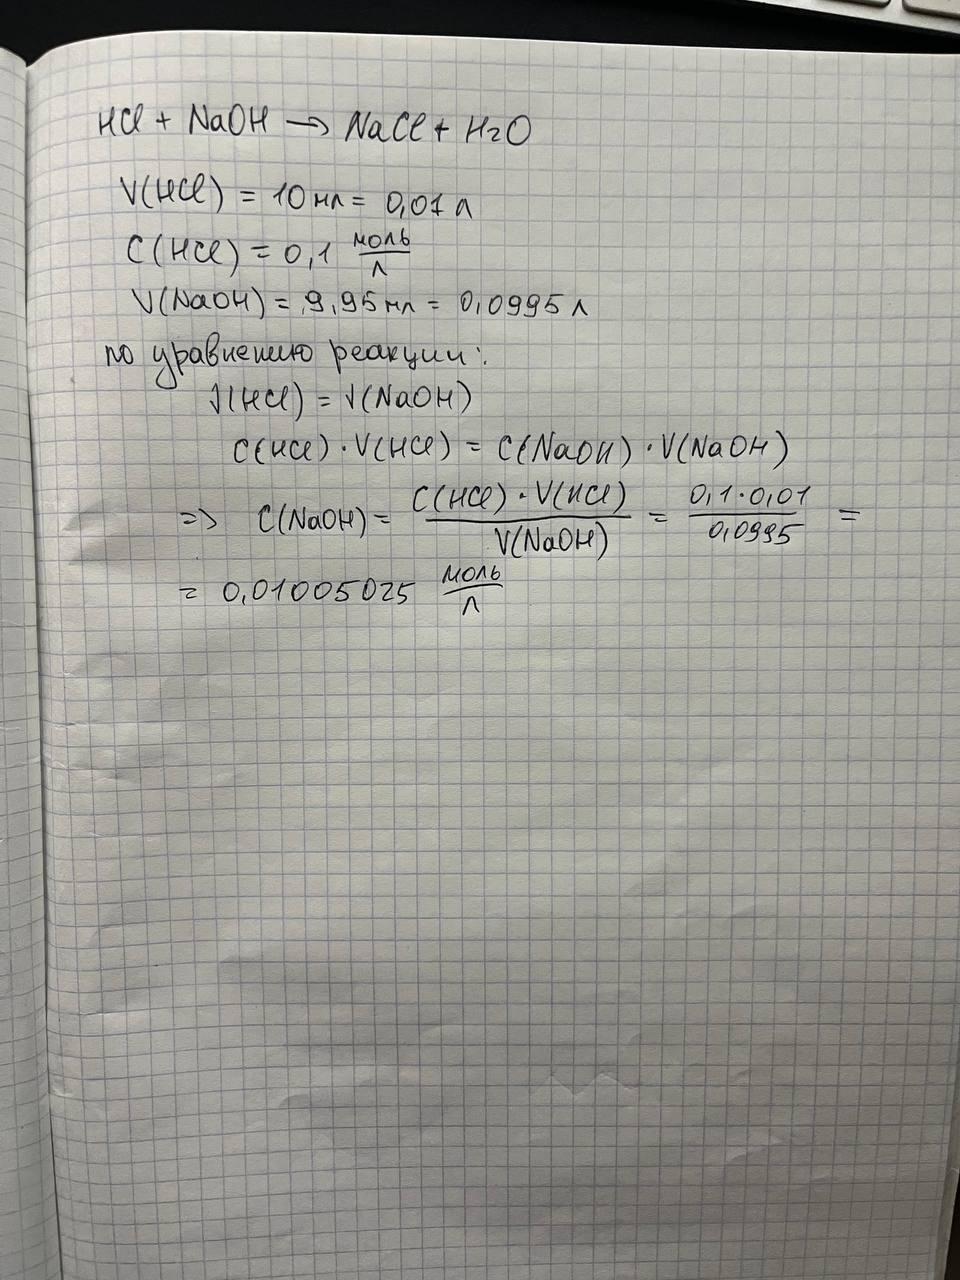 HCl + NaOH → NaCl + H2O
V(HCl) = 10 мл = 0,01 л
C(HCl) = 0,1 моль/л
V(NaOH) = 9,95 мл = 0,0995 л
по уравнению реакции:
ν(HCl) = ν(NaOH)
C(HCl) · V(HCl) = C(NaOH) · V(NaOH)
=> C(NaOH) = C(HCl) · V(HCl) / V(NaOH) = 0,1 · 0,01 / 0,0995 =
= 0,01005025 моль/л